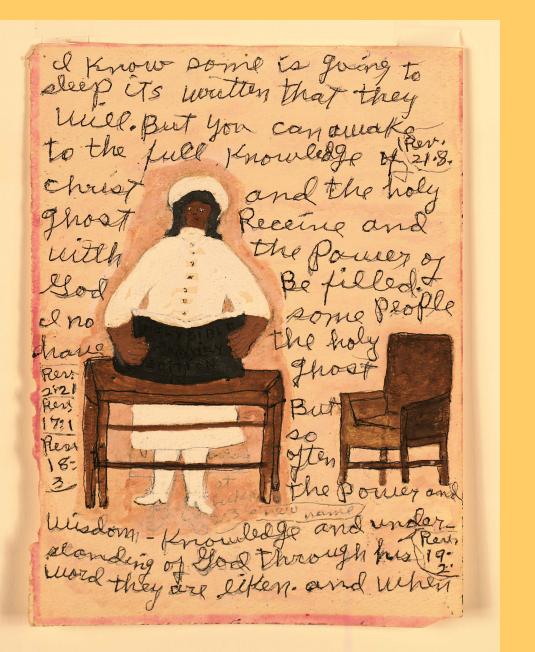 I know some is going to
sleep its written that they
will. But you can awake
to the full Knowledge of (Rev. 21-8.
christ and the holy
ghost Receive and
with the Power of
God Be filled.
I no some People
have the holy
ghost
Rev: 2:21
Rev: 17:1
Rev: 18-3
But
so
often
the Power and
wisdom - Knowledge and under-
standing of God through his (Rev: 19-2.
word they are liken. and when